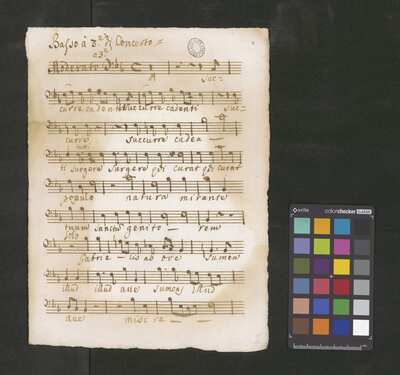 Basso à 3 Concerto
Moderato A Suc=
curre cadenti Succurre cadenti suc=
curre succurre caden=
ti surgere surgere qui curat qui curat
populo natura mirante
tuum sanctum genito — rem
Gabrie — lis ab ore sumens
illud illud ave sumens illud
ave misere —
colorchecker CLASSIC